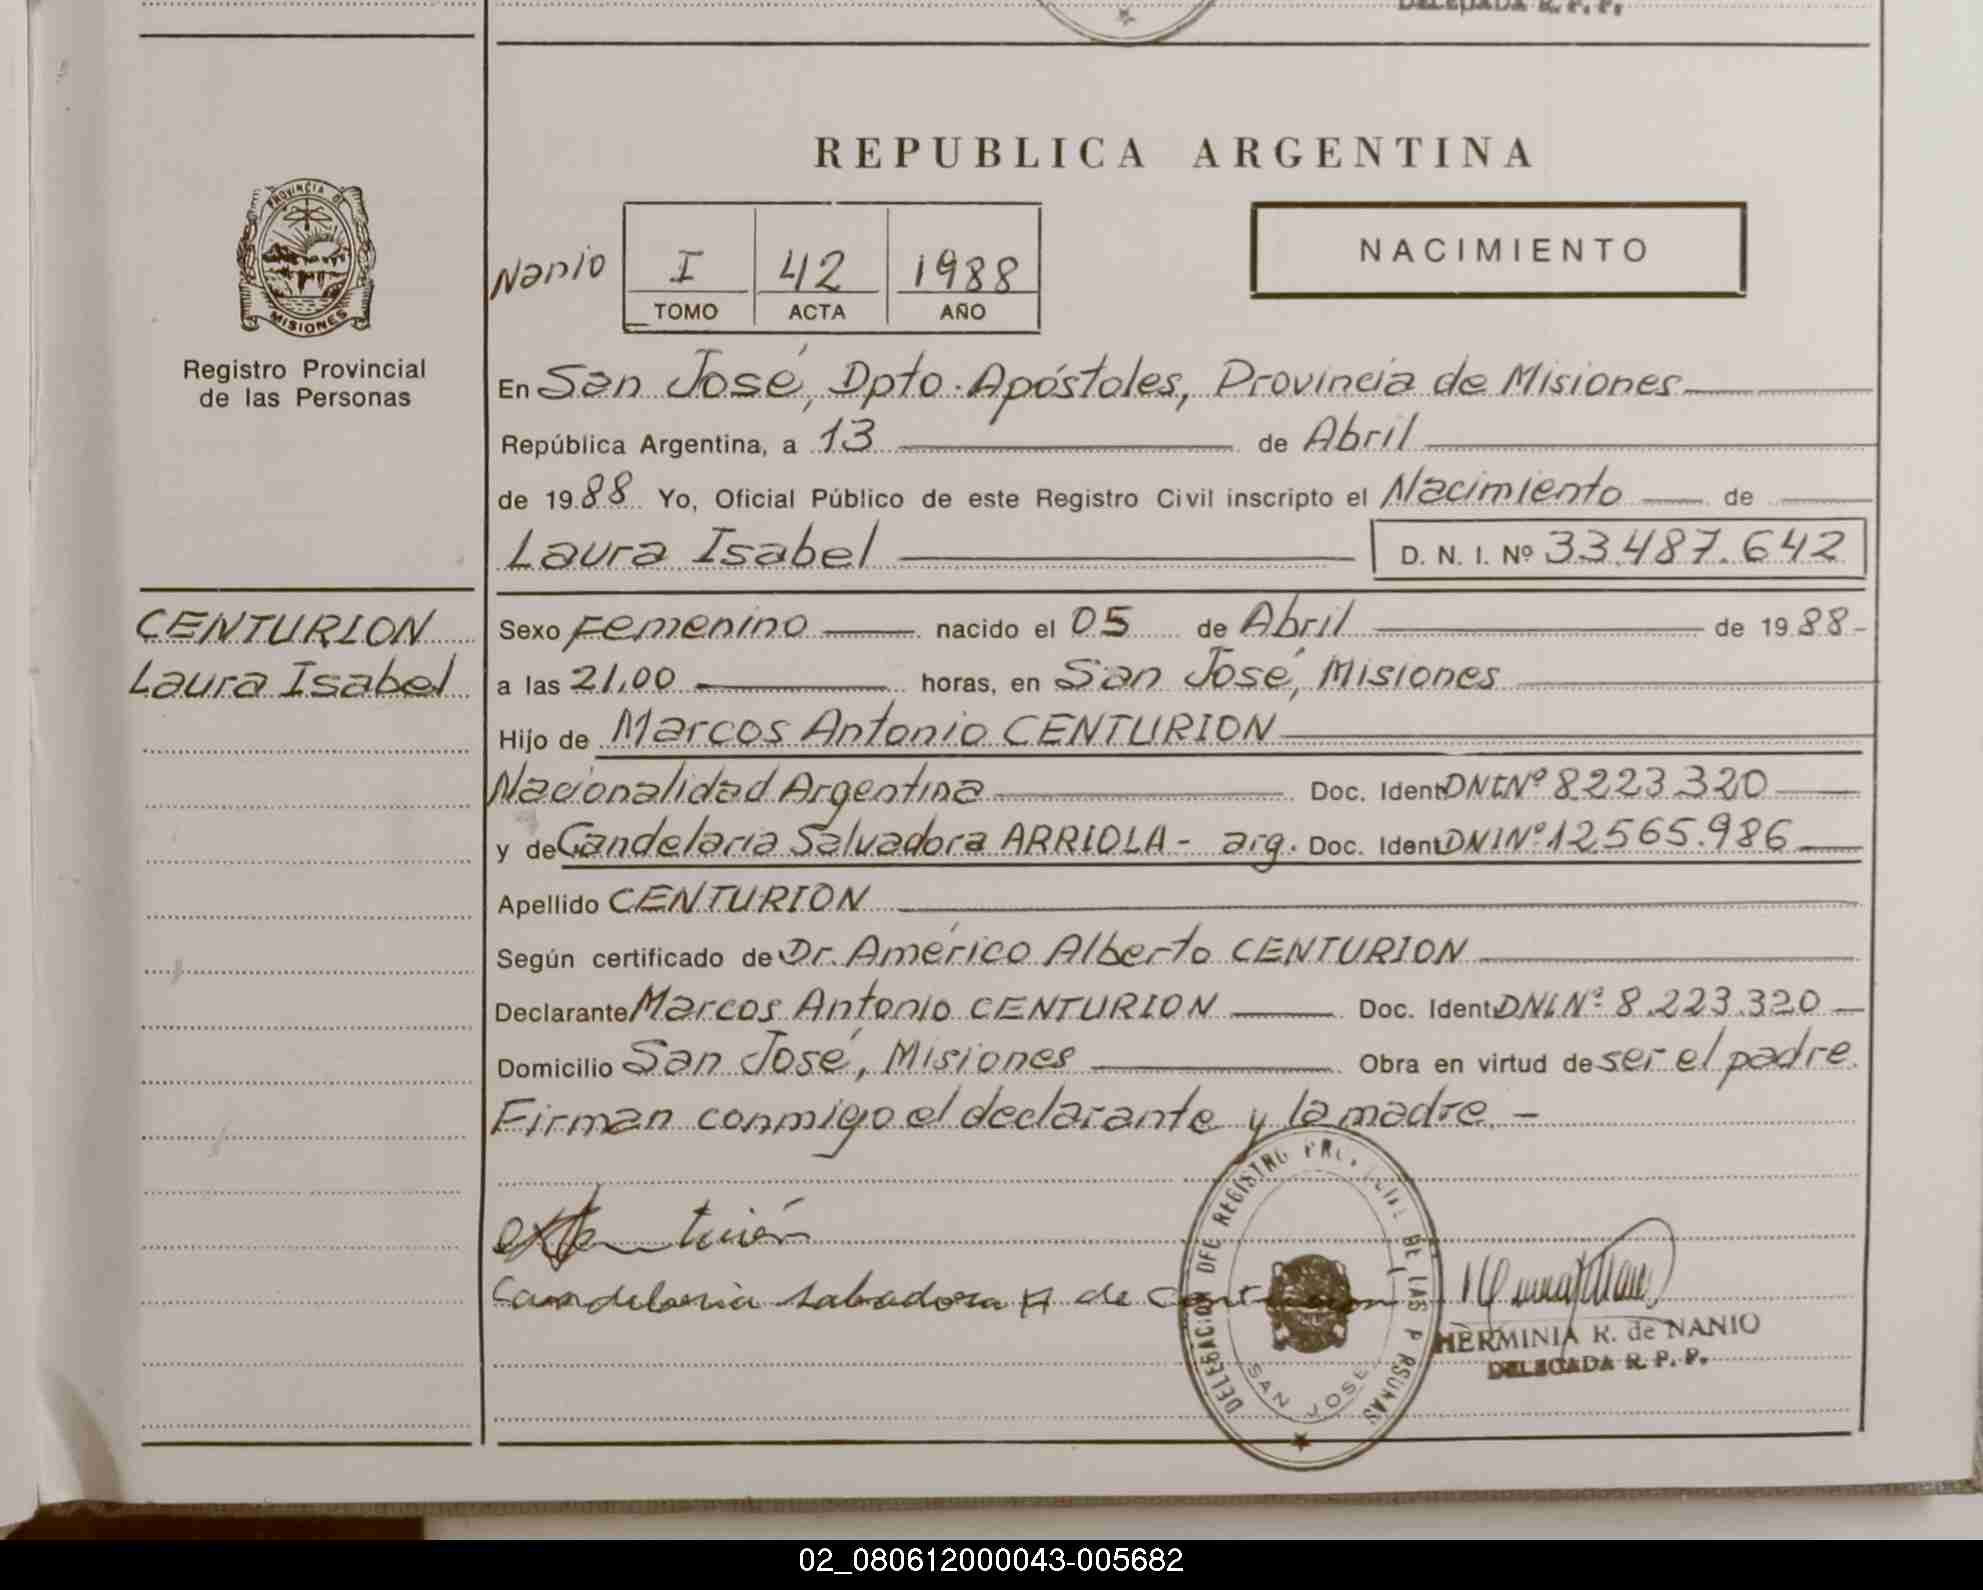 DELEGADA R. P. P.
REPUBLICA ARGENTINA
PROVINCIA DE
MISIONES
Registro Provincial
de las Personas
Nanio
I 42 1988
TOMO ACTA AÑO
NACIMIENTO
En San José, Dpto. Apóstoles, Provincia de Misiones
República Argentina, a 13 de Abril
de 1988 Yo, Oficial Público de este Registro Civil inscripto el Nacimiento de
Laura Isabel D. N. I. Nº 33.487.642
CENTURION
Laura Isabel
Sexo Femenino nacido el 05 de Abril de 1988-
a las 21,00 horas, en San José, Misiones
Hijo de Marcos Antonio CENTURION
Nacionalidad Argentina Doc. Ident DNI Nº 8223.320
y de Candelaria Salvadora ARRIOLA - arg. Doc. Ident DNI Nº 12565.986
Apellido CENTURION
Según certificado de Dr. Américo Alberto CENTURION
Declarante Marcos Antonio CENTURION Doc. Ident DNI Nº 8.223.320
Domicilio San José, Misiones Obra en virtud de ser el padre.
Firman conmigo el declarante y la madre.-
Candelaria Salvadora A de Centurion
DELEGACION DEL REGISTRO PROVINCIAL DE LAS PERSONAS
SAN JOSE
HERMINIA R. de NANIO
DELEGADA R. P. P.
02_080612000043-005682